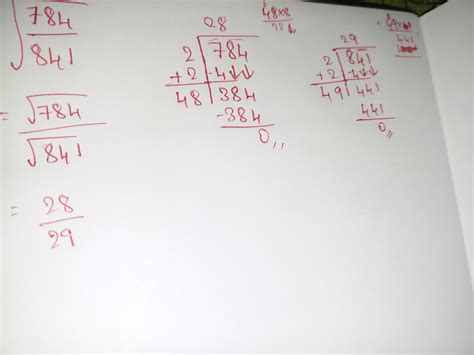 √784/841
= √784/√841
= 28/29
28
2 | 784
+2 | -4↓↓
48 | 384
-384
0,,
48×8
29
2 | 841
+2 | -4↓↓
49 | 441
441
0,,
441